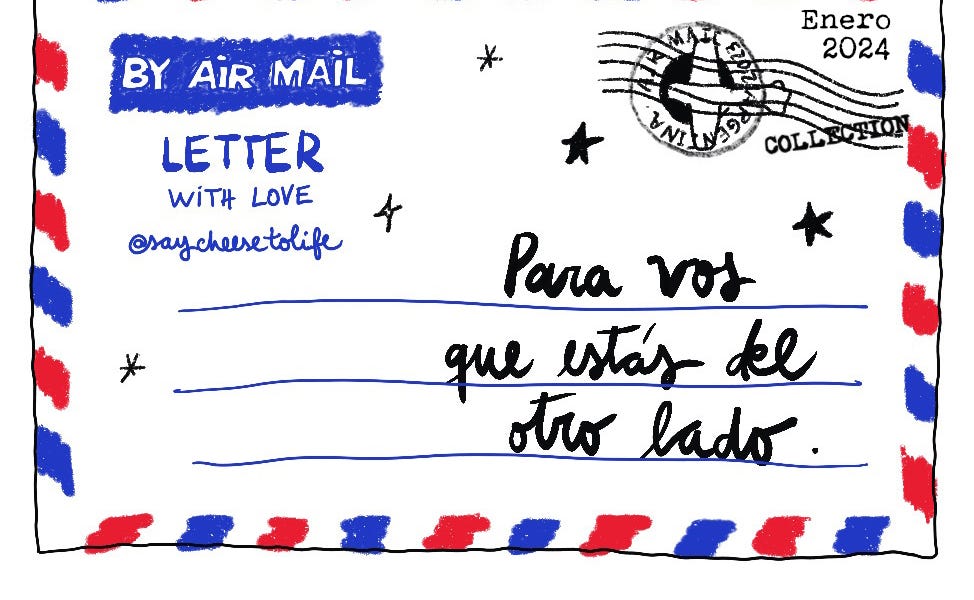 Enero
2024
BY AIR MAIL
LETTER
WITH LOVE
@saycheesetolife
COLLECTION
Para vos
que estás del
otro lado.